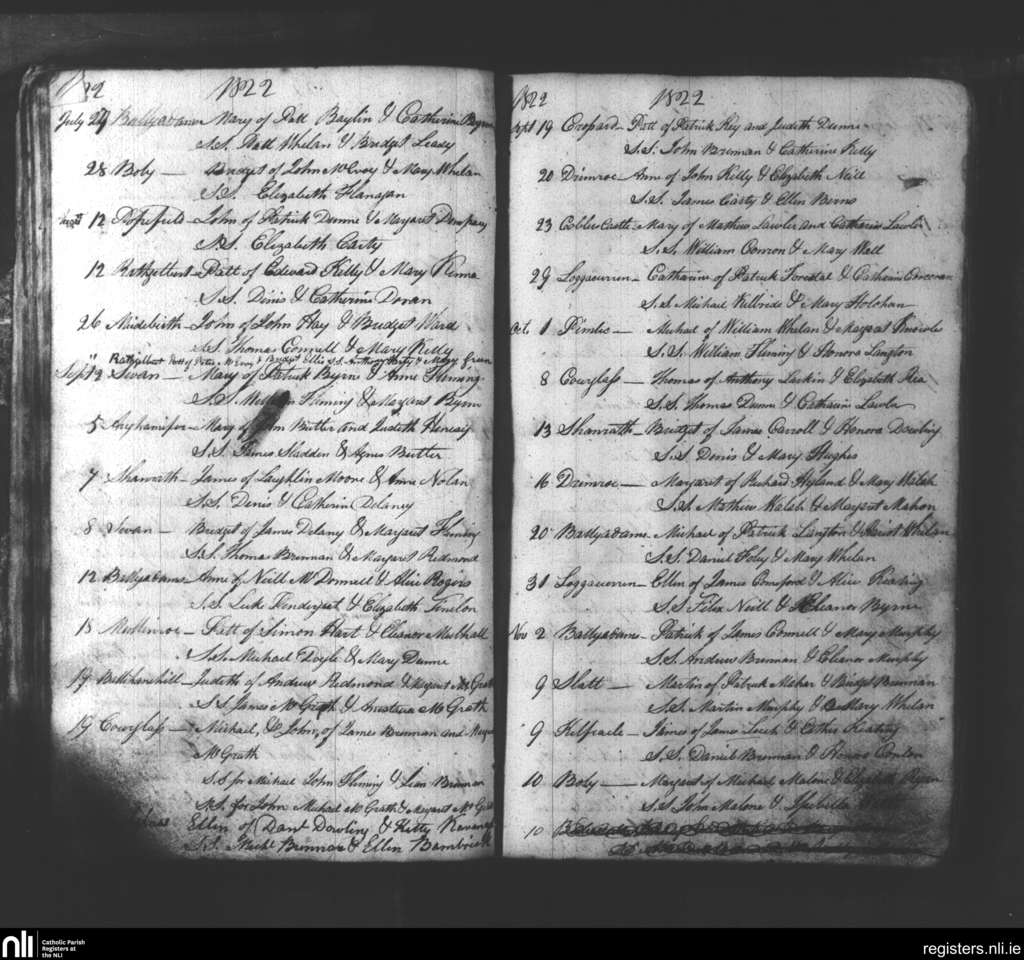 1822
1822
July 27 Ballyadams Mary of Patt Baylin & Catherine
S.S. Patt Whelan & Bridget Leady
28 Boly — Bridget of John McEvoy & Mary Whelan
S.S. Elizabeth Flanagan
12 John of Patrick Dunne & Margaret Dempsey
S.S. Elizabeth Carty
12 Patt of Edward Kelly & Mary Kenna
S.S. Dinis & Catherine Doran
26 John of John Hay & Bridget Ward
S.S. Thomas Connell & Mary Kelly
Peter McEvoy & Bridget Ellis S.S. & Mary Green
Sept Swan — Mary of Patrick Byrne & Anne Fleming
S.S. Fleming & Margaret Byrn
5 Mary of John Butler and Judeth
S.S. James Sladden & Agnes Butler
7 Shanrath — James of Laughlin Moore & Anne Nolan
S.S. Denis & Catherine Delaney
8 Swan — Bridget of James Delany & Margaret Fleming
S.S. Thomas Brennan & Margaret Redmond
12 Ballyadams Anne of Neill McDonnell & Alice Rogers
S.S. Luke & Elizabeth Fenelon
15 Mullinroe — Patt of Simon Hart & Eleanor Mulhall
S.S. Michael Doyle & Mary Dunne
19 Judeth of Andrew Redmond & Margaret McGrath
S.S. James McGrath & Anastasia McGrath
19 Courglass — Michael, & John, of James Brennan and
McGrath
S.S for Michael John Fleming & Brennan
S.S. for John Michael McGrath & Margaret McGrath
Ellen of Danl Dowling & Kitty
S.S. Michl Brennan & Ellen Bambrick
1822
1822
Sept 19 Patt of Patrick Key and Judith Dunne
S.S. John Brennan & Catherine Kelly
20 Drimroe — Anne of John Kelly & Elizabeth Neill
S.S. James Carty & Ellen Berns
23 Cobler Castle Mary of Mathew Lawler and Catharin Lawler
S.S. William Connon & Mary Wall
29 Loggacurren — Catharine of Patrick & Catharin Corcoran
S.S Michael Kilbride & Mary Holohan
Oct. 1 Pimlic — Michael of William Whelan & Margaret
S.S. William Fleming & Honora Langton
8 Courglass — Thomas of Anthony Larkin & Elizabeth
S.S. Thomas Dunne & Catharin Lawler
13 Shanrath — Bridget of James Carroll & Honora Dowling
S.S. Denis & Mary Hughes
16 Drimroe — Margaret of Richard Hyland & Mary Walsh
S.S. Mathew Walsh & Margaret Mahon
20 Ballyadams Michael of Patrick Langton & Whelan
S.S. Daniel Foley & Mary Whelan
31 Loggacurren — Ellen of James Comeford & Alice Keating
S.S Felix Neill & Eleanor Byrne
Nov 2 Ballyadams — Patrick of James Connell & Mary Murphy
S.S. Andrew Brennan & Eleanor Murphy
9 Slatt — Martin of Patrick Mahar & Bridget Brennan
S.S. Martin Murphy & Mary Whelan
9 James of James Leech & Esther Keating
S.S. Daniel Brennan & Honora Conlon
10 Boly — Margaret of Michael Malone & Elizabeth
S.S. John Malone &
10
nli Catholic Parish Registers at the NLI
registers.nli.ie